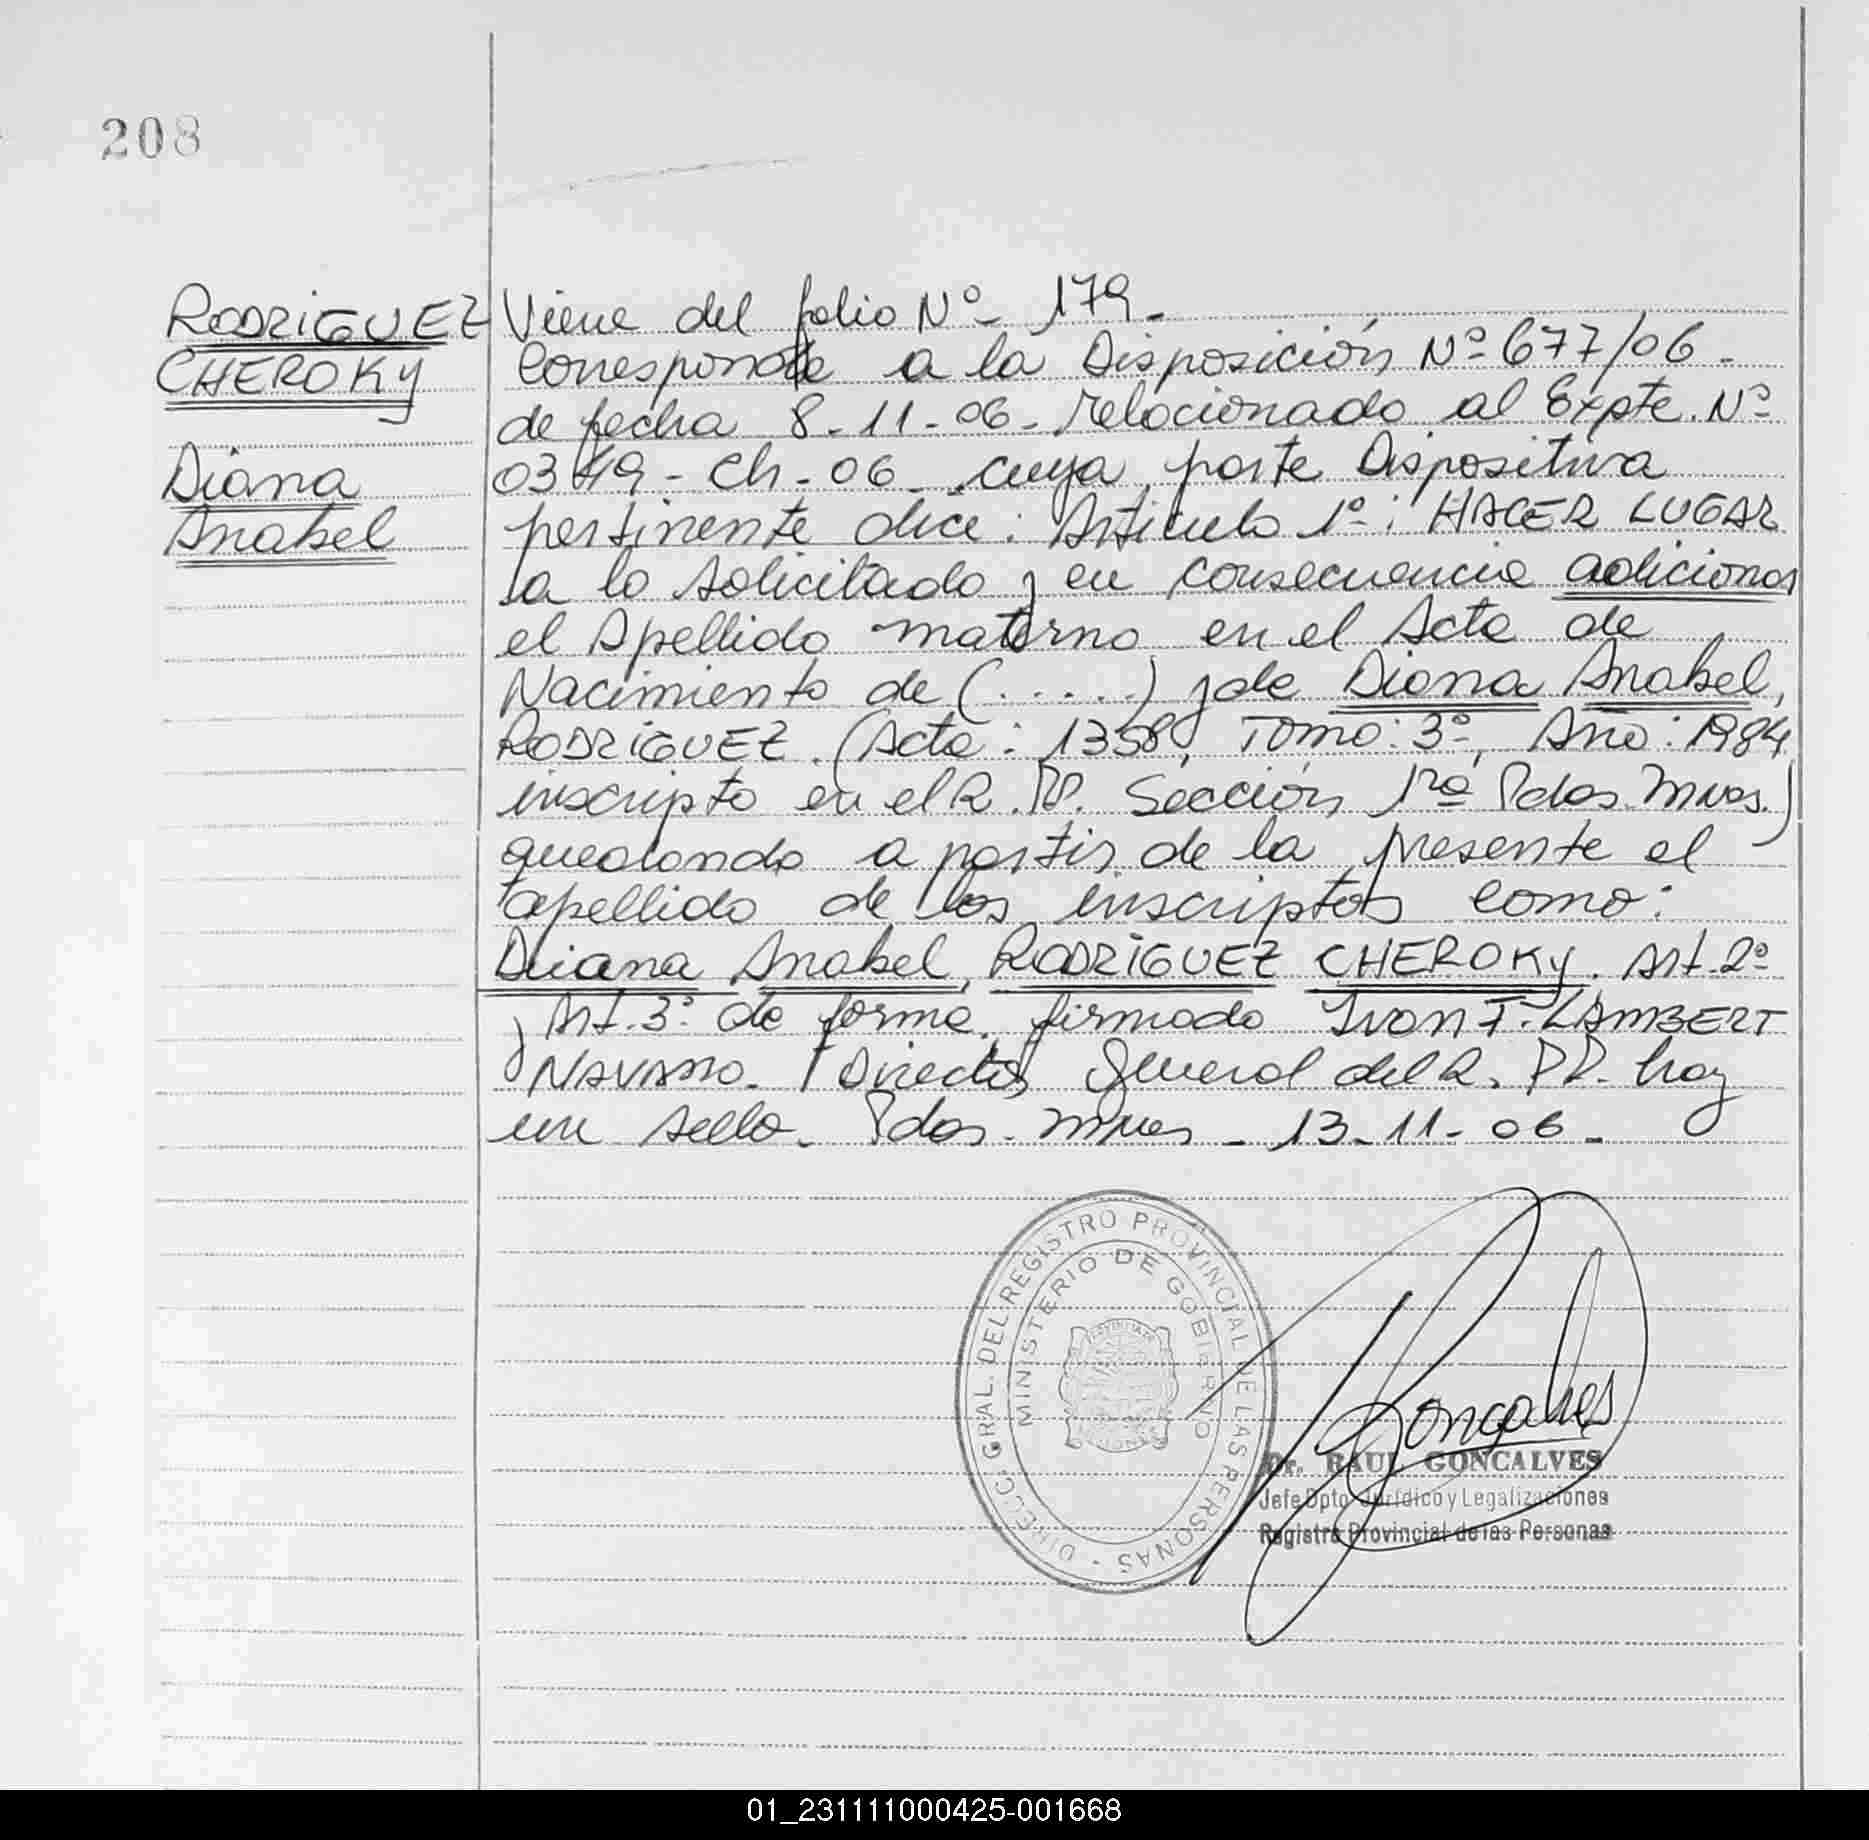 208
RODRIGUEZ
CHEROKY
Diana
Anabel
Viene del folio Nº- 179.-
Corresponde a la Disposición Nº- 677/06 -
de fecha 8-11-06- relacionado al Expte. Nº
0349-Ch-06 cuya parte Dispositiva
pertinente dice: Artículo 1º: HACER LUGAR
a lo solicitado y en consecuencia adicionar
el Apellido materno en el Acta de
Nacimiento de (.....) y de Diana Anabel,
RODRIGUEZ. (Acta: 1358, Tomo: 3º, Año: 1984
inscripto en el R.P. Sección 1ra Pdas. Mnes.)
quedando a partir de la presente el
apellido de los inscriptos como:
Diana Anabel, RODRIGUEZ CHEROKY. Art. 2º
y Art. 3º de forma, firmado Ivon F. LAMBERT
NAVARRO. Director General del R. PP. hay
un sello. Pdas. Mnes - 13-11-06 -
DIRECC. GRAL. DEL REGISTRO PROVINCIAL DE LAS PERSONAS -
MINISTERIO DE GOBIERNO
Goncalves
Dr. RAUL GONCALVES
Jefe Dpto Jurídico y Legalizaciones
Registro Provincial de las Personas
01_231111000425-001668